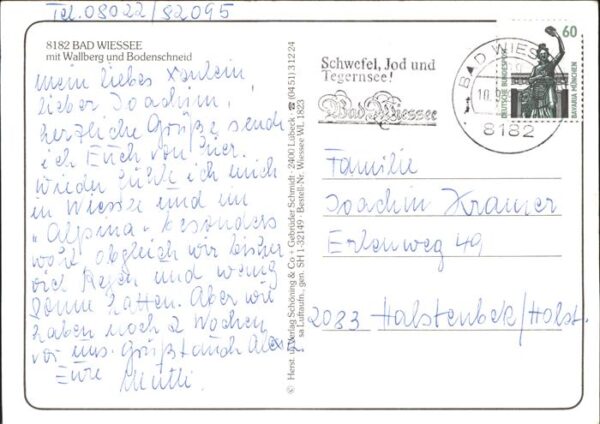 Tel. 08022/82095
8182 BAD WIESSEE
mit Wallberg und Bodenschneid
mein liebes
lieber Joachim,
herzliche Grüße sende
ich Euch von hier.
wieder fühle ich mich
in Wiessee und im
"Alpina" besonders
wohl obgleich wir bisher
viel Regen und wenig
Sonne hatten. Aber wir
haben noch 2 Wochen
vor uns. Grüßt auch
Eure Mutti.
© Herst. u. Verlag Schöning & Co + Gebrüder Schmidt · 2400 Lübeck · ☎ (04 51) 3 12 24
sa Luftaufn., gen. SH 1-32149 · Bestell-Nr. Wiessee WL 1823
Schwefel, Jod und
Tegernsee!
Bad Wiessee
BAD WIES
10.
8182
60
DEUTSCHE BUNDESPOST
BAVARIA MÜNCHEN
Familie
Joachim Kramer
Erlenweg 49
2083 Halstenbek/Holst.